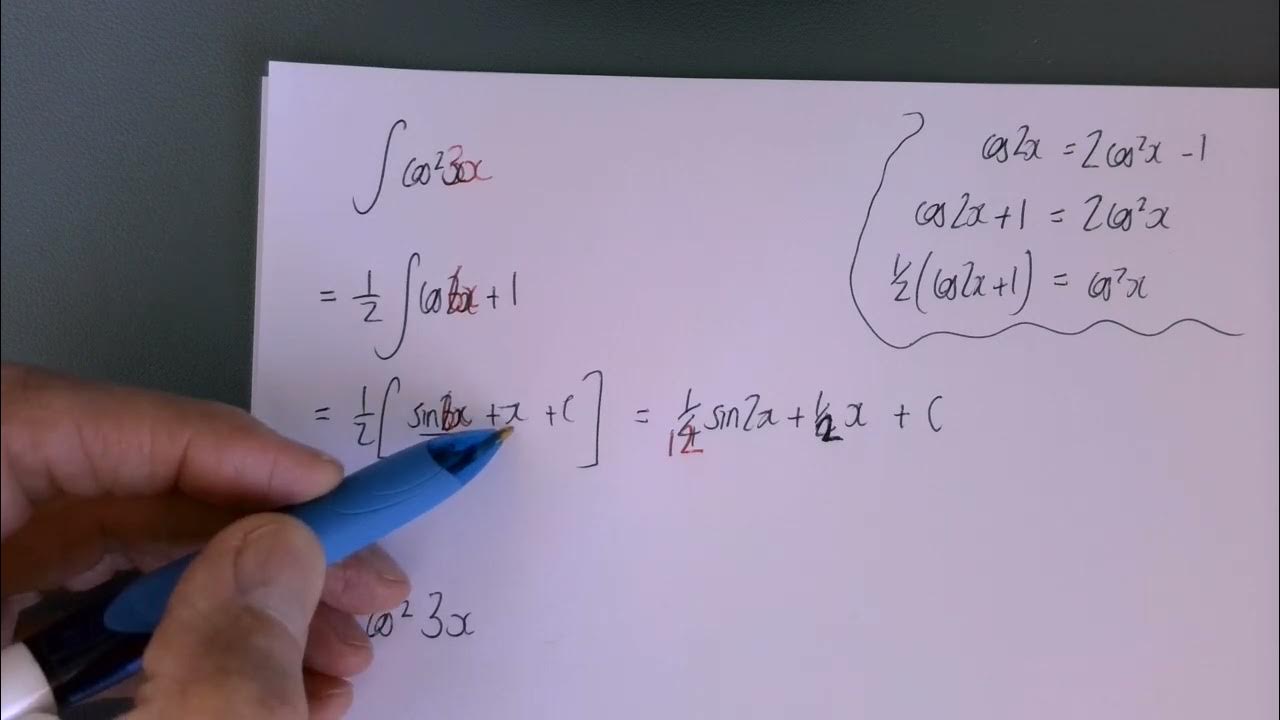 ∫ cos²3x
= 1/2 ∫ cos6x + 1
= 1/2 [ sin6x + x + C ] = 1/12 sin2x + 1/2 x + C
cos²3x
cos2x = 2cos²x - 1
cos2x + 1 = 2cos²x
1/2(cos2x + 1) = cos²x